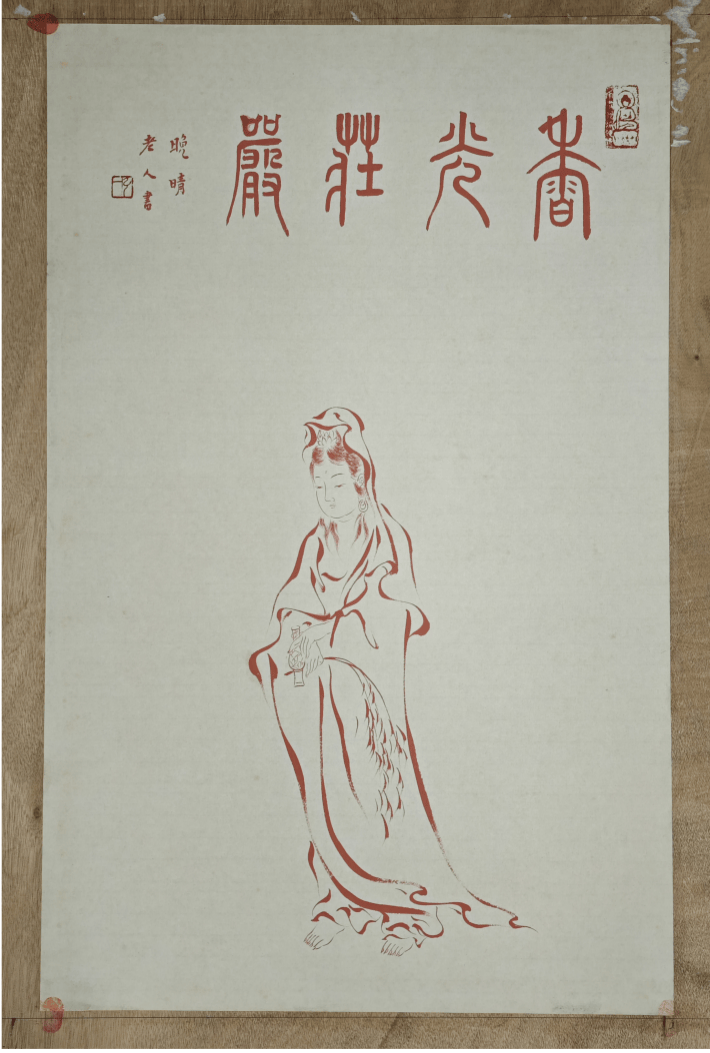 香光莊嚴
晚晴
老人書